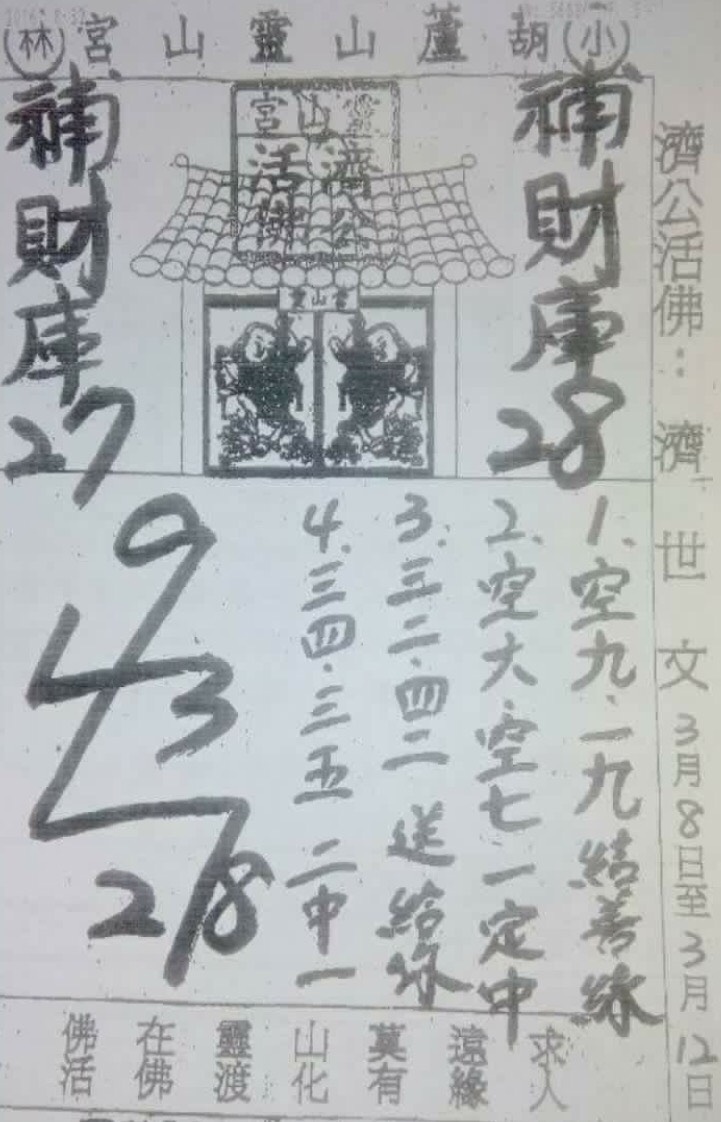 小胡蘆山靈山宮林
濟公活佛：濟世文3月8日至3月12日
補財庫28
靈山宮
濟公
活佛
靈山宮
補財庫27
1、空九、一九結善緣
2、空大、空七一定中
3、三二、四二送給你
4、三四、三五二中一
9
43
28
佛在靈山莫遠求
活佛渡化有緣人